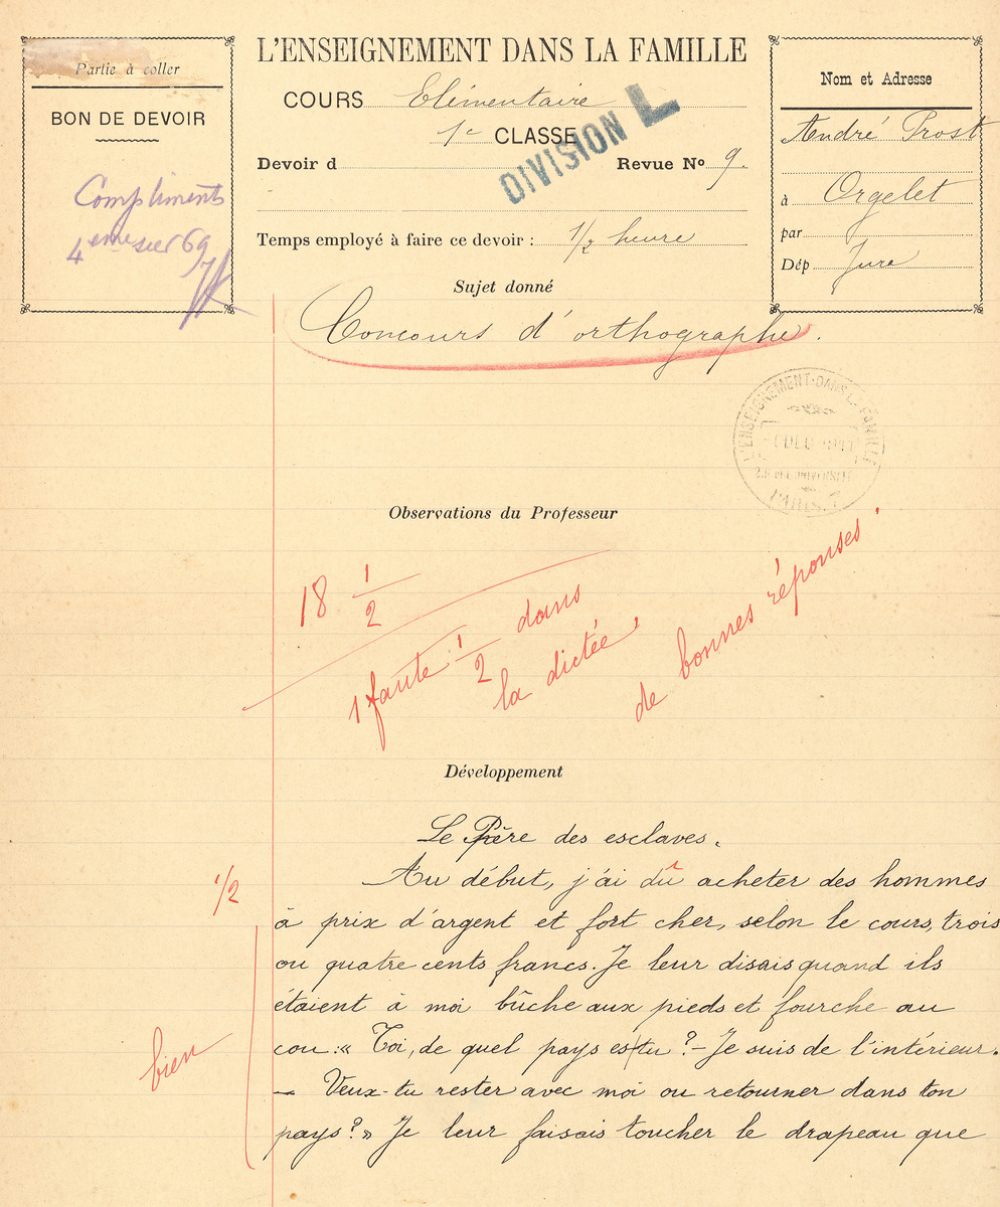 Partie à coller
BON DE DEVOIR
Compliments
L'ENSEIGNEMENT DANS LA FAMILLE
COURS Elémentaire
1e CLASSE
DIVISION L
Devoir d
Revue No 9.
Temps employé à faire ce devoir : 1/2 heure
Nom et Adresse
André Prost
à Orgelet
par
Dép Jura
Sujet donné
Concours d'orthographe.
L'ENSEIGNEMENT DANS LA FAMILLE
PARIS
Observations du Professeur
18 1/2
1 faute 1/2 dans
la dictée,
de bonnes réponses.
Développement
Le Père des esclaves.
1/2
Au début, j'ai dû acheter des hommes
à prix d'argent et fort cher, selon le cours, trois
ou quatre cents francs. Je leur disais quand ils
étaient à moi bûche aux pieds et fourche au
cou : « Toi, de quel pays es/tu ? – Je suis de l'intérieur.
bien
– Veux-tu rester avec moi ou retourner dans ton
pays ? » Je leur faisais toucher le drapeau que